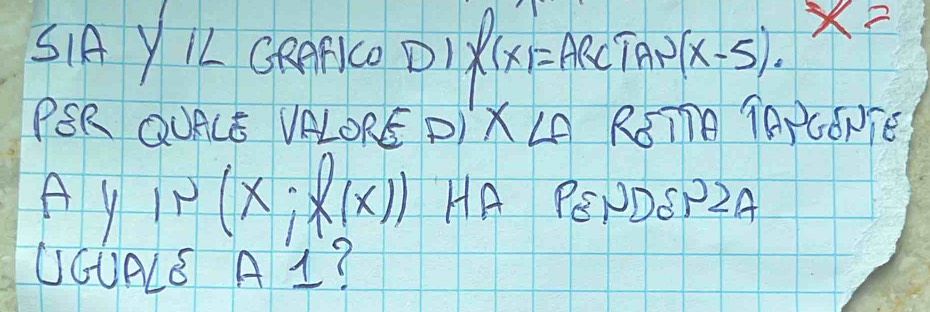 X=
SIA γ IL GRAFICO DI f(x)=ARCTAN(X-5).
PER QUALE VALORE DI X LA RETTA TANGENTE
A γ IN (X; f(x)) HA PENDENZA
UGUALE A 1?